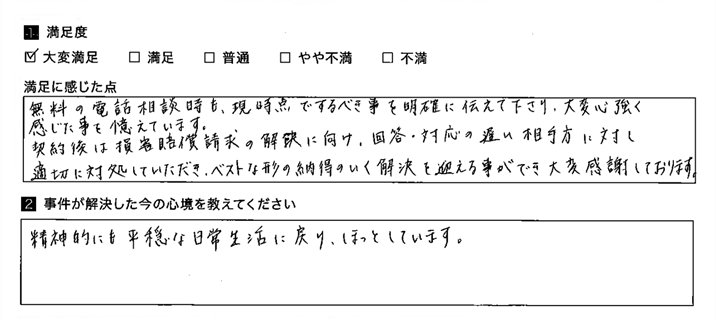 1 満足度
☑ 大変満足 □ 満足 □ 普通 □ やや不満 □ 不満
満足に感じた点
無料の電話相談時も、現時点でするべき事を明確に伝えて下さり、大変心強く
感じた事を憶えています。
契約後は損害賠償請求の解決に向け、回答・対応の遅い相手方に対し
適切に対処していただき、ベストな形の納得のいく解決を迎える事ができ大変感謝しております。
2 事件が解決した今の心境を教えてください
精神的にも平穏な日常生活に戻り、ほっとしています。